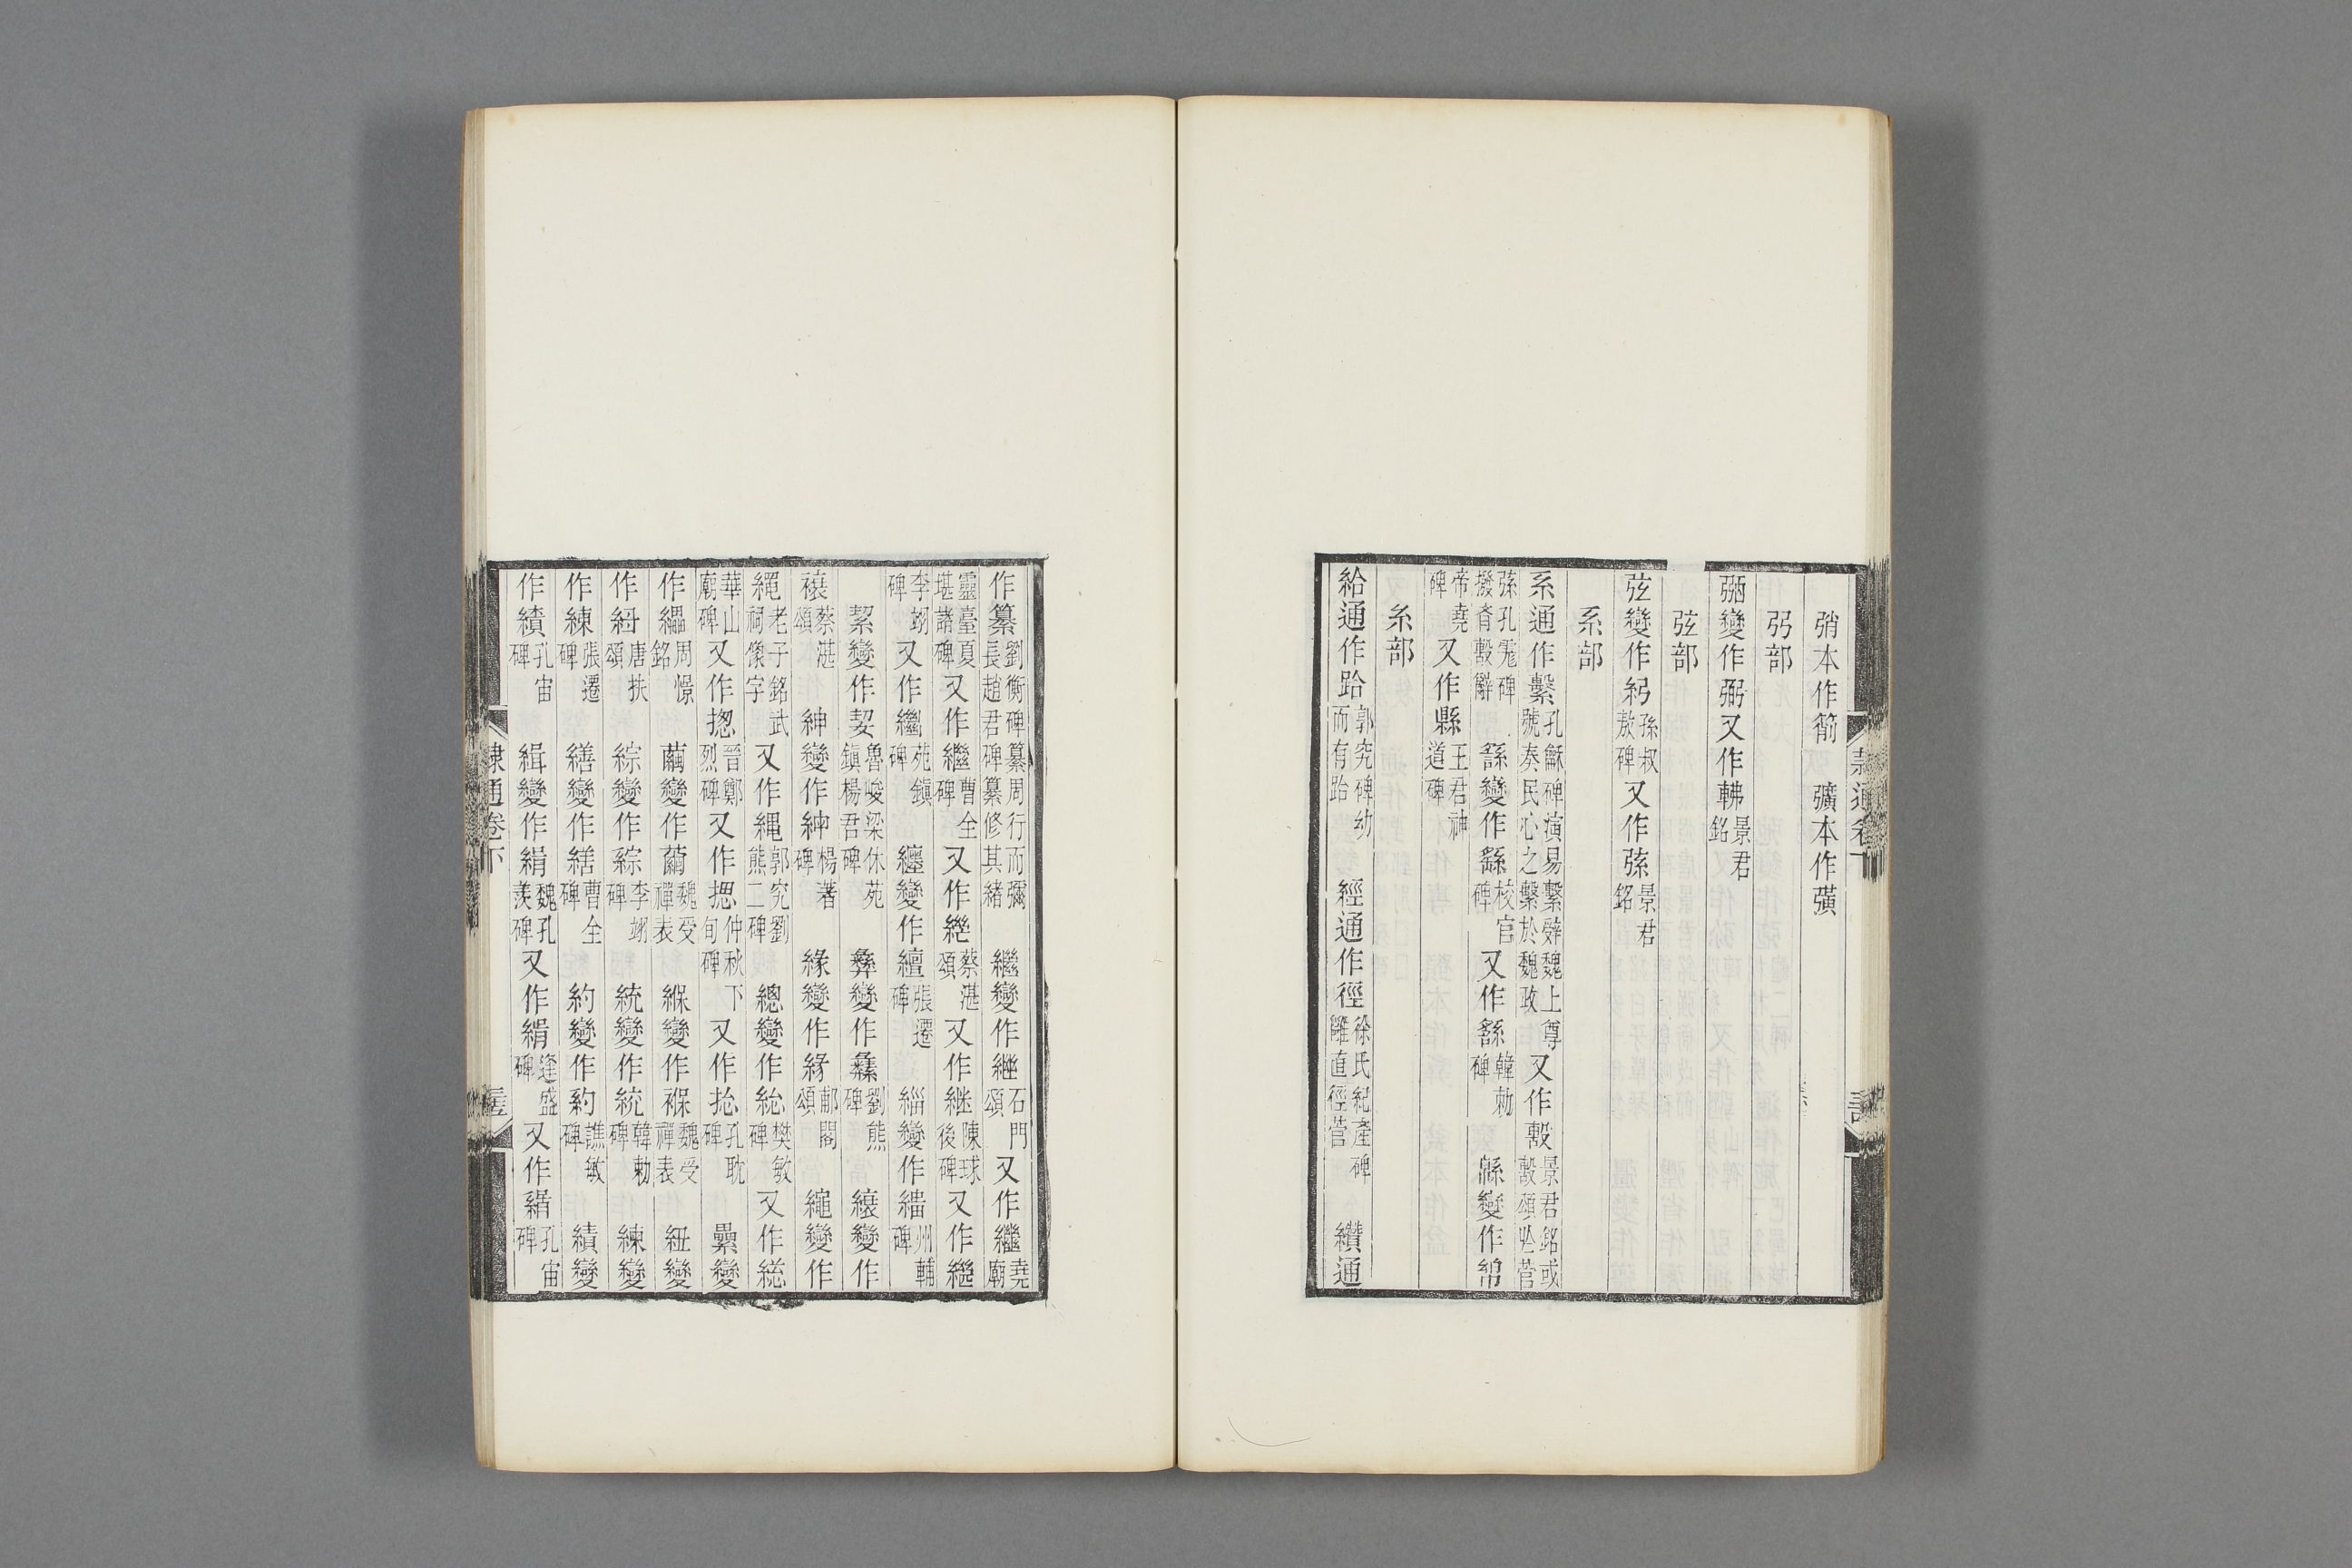 弰本作箾　彍本作彉
弜部
弼變作弻又作㪍景君銘
弦部
弦變作紭孫叔敖碑又作㢩景君銘
系部
系通作繫孔龢碑演易繫辭魏上尊號奏民心之繫於魏政又作毄景君銘或毄頌於管
孫孔彪碑撥音毄辭　繇變作繇校官碑又作繇韓勑碑　緜變作綿
帝堯碑又作縣王君神道碑
糸部
給通作跲郭究碑幼而有跲　經通作徑徐氏紀產碑雖直徑菅　纘通
作纂劉衡碑纂長趙君碑纂周行而彌修其緒　繼變作繼石門頌又作繼堯廟
靈臺夏堪諸碑又作繼曹全碑又作継蔡湛頌又作継陳球後碑又作繼
李翊碑又作繼苑鎮碑　纏變作纏張遷碑　緇變作緇州輔碑
絜變作契魯峻梁休苑鎮楊君碑　彝變作彝劉熊碑　纕變作
禳蔡湛頌　紳變作紳楊著碑　緣變作緣郙閣頌　繩變作
繩老子銘武祠像字又作繩郭究劉熊二碑　總變作総樊敏碑又作総
華山廟碑又作揔晉鄭烈碑又作摠仲秋下旬碑又作捴孔耽碑　纍變
作纝周憬銘　繭變作繭魏受禪表　緥變作褓魏受禪表　紐變
作紐唐扶頌　綜變作綜李翊碑　統變作統韓勑碑　練變
作練張遷碑　繕變作繕曹全碑　約變作約譙敏碑　績變
作績孔宙碑　緝變作緝魏孔羨碑又作緝逢盛碑又作緝孔宙碑
隸通卷下